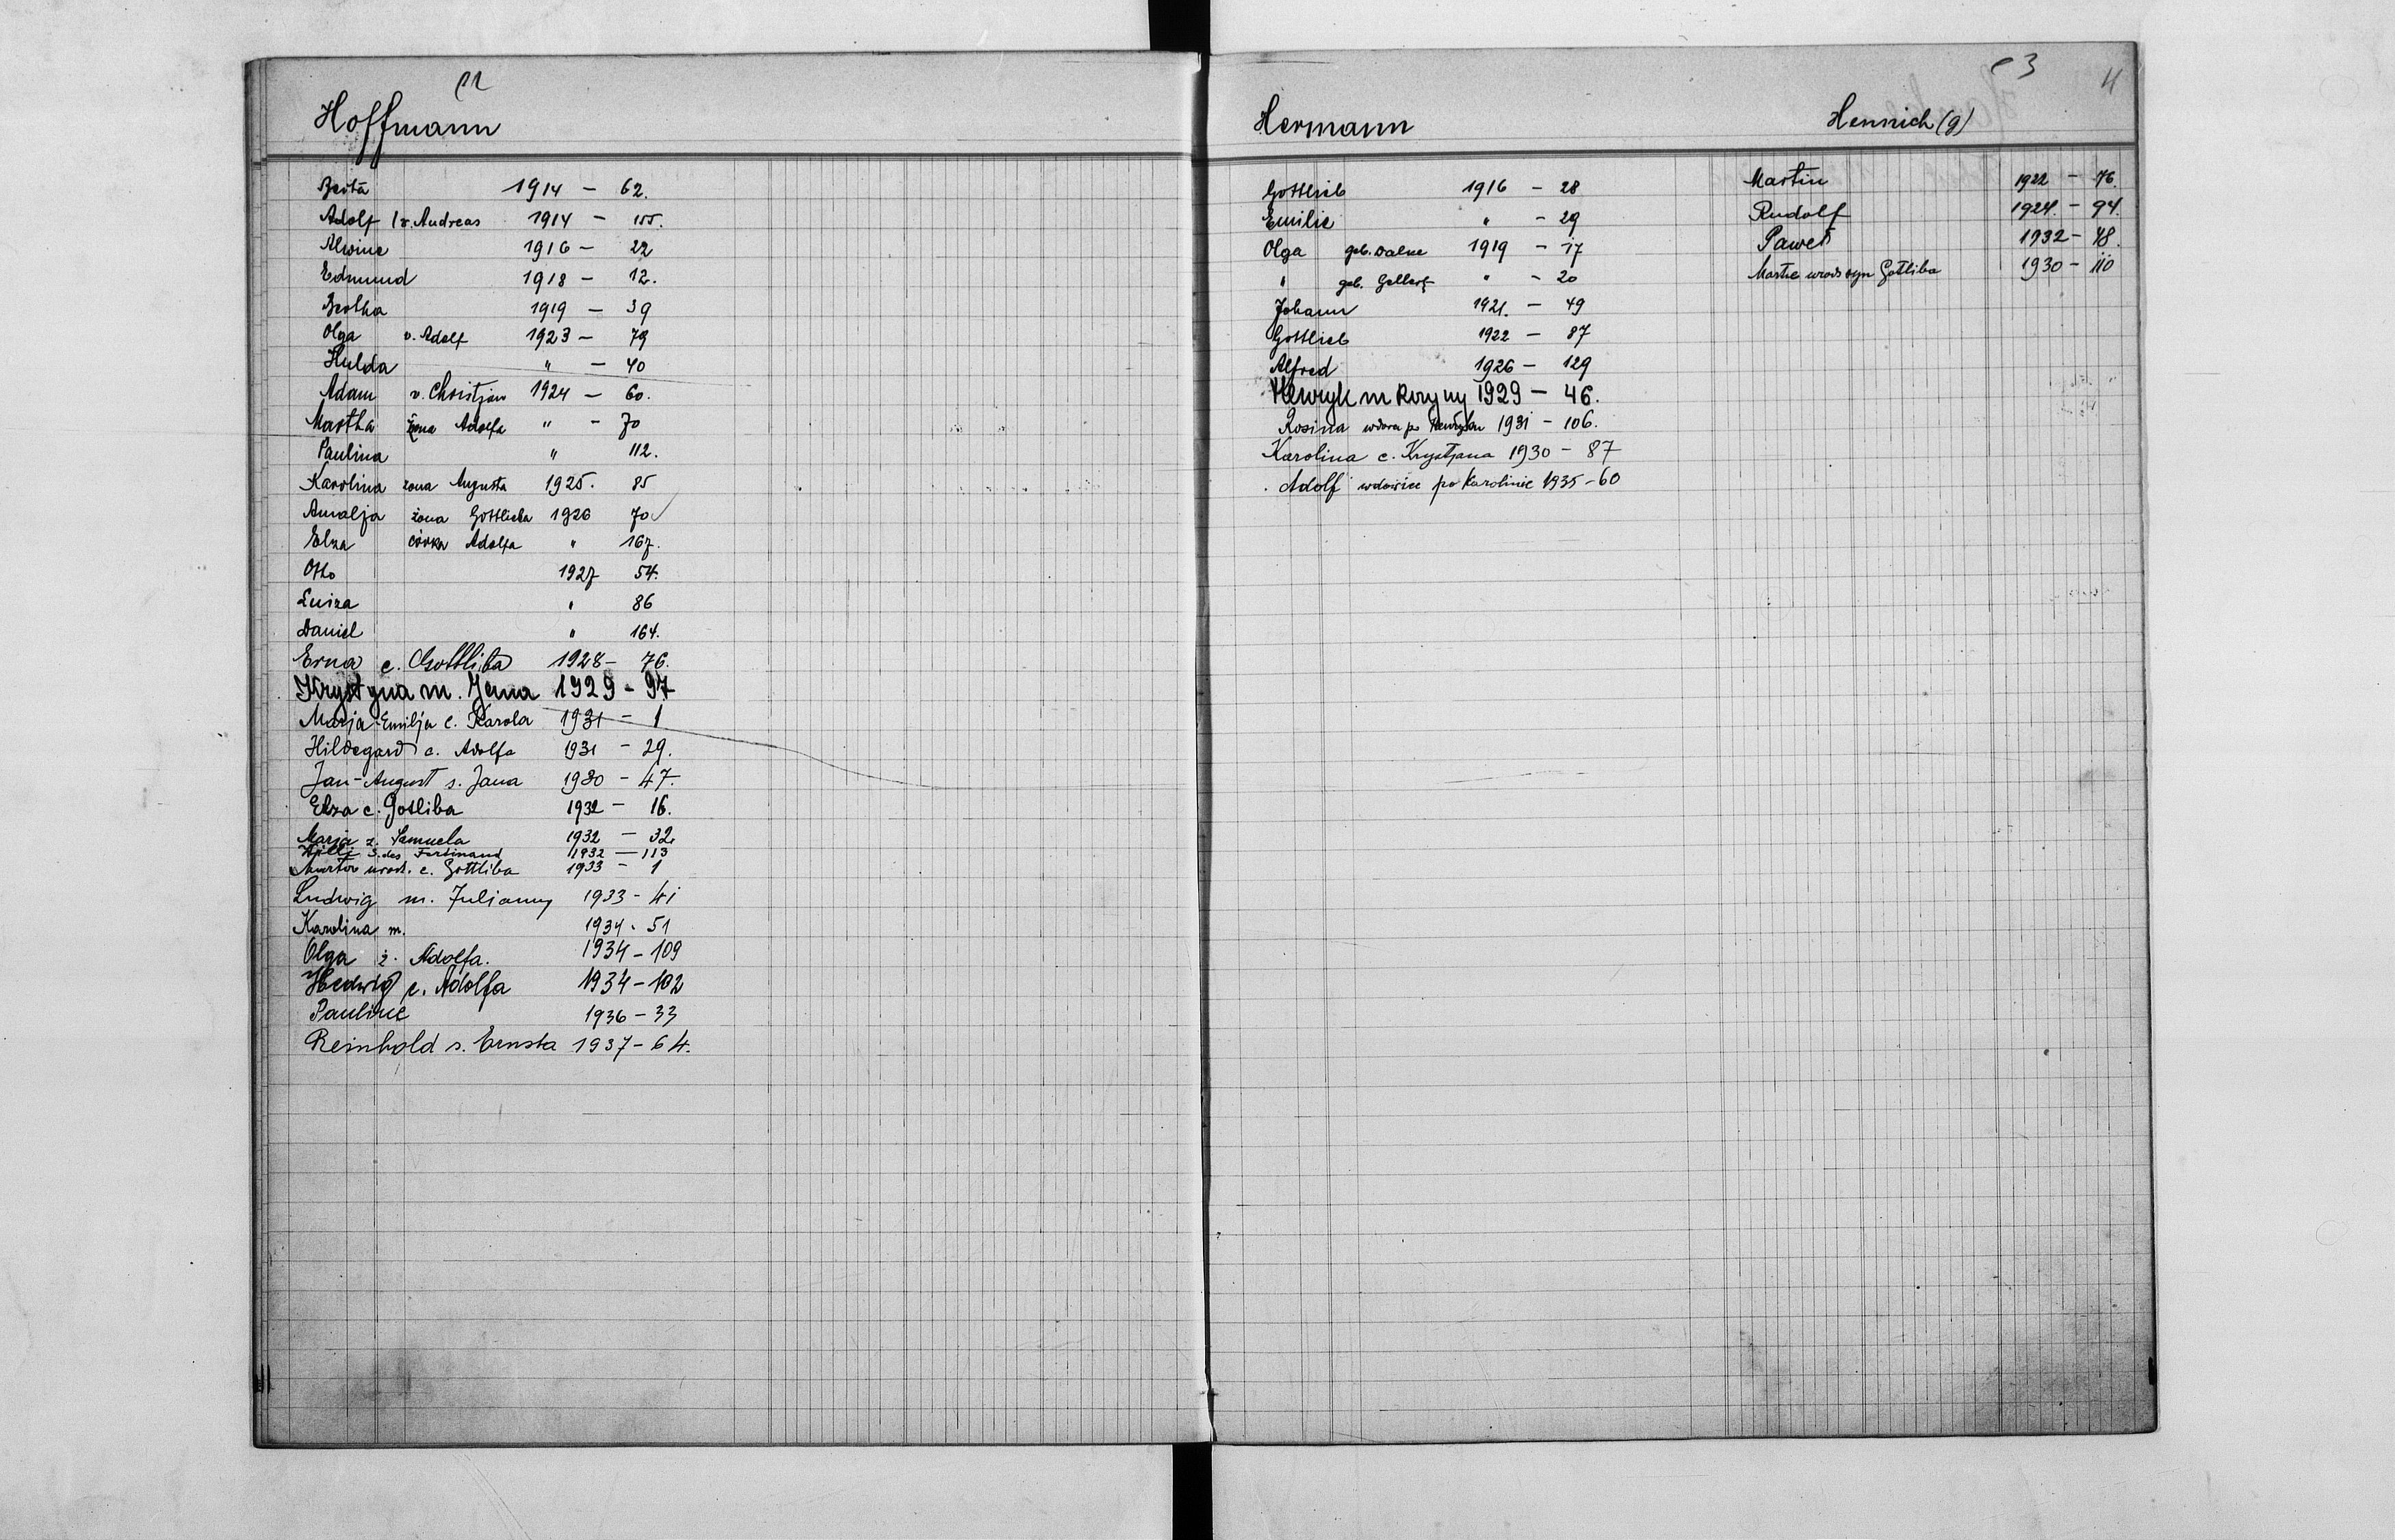 Hoffmann
Berta 1914 - 62.
Adolf (v. Andreas 1914 - 155.
Alwine 1916 - 22
Edmund 1918 - 12.
Bertha 1919 - 39
Olga v. Adolf 1923 - 79
Hulda " - 40
Adam v. Christjan 1924 - 60.
Martha żona Adolfa " - 70
Paulina " 112.
Karolina żona Augusta 1925. 85
Amalja żona Gottlieba 1926 70
Elza córka Adolfa " 167.
Otto 1927 54.
Luiza " 86
Daniel " 164.
Erna c. Gottliba 1928 - 76.
Krystyna m. Jana 1929 - 97
Marja-Emilja c. Karola 1931 - 1
Hildegard c. Adolfa 1931 - 29.
Jan-August s. Jana 1930 - 47.
Elza c. Gotliba 1932 - 16.
Marja ż. Samuela 1932 - 32.
Willi S. des Ferdinand 1932 - 113
urodz. c. Gottliba 1933 - 1
Ludwig m. Juljanny 1933 - 41
Karolina m. 1934 - 51
Olga ż. Adolfa. 1934 - 109
Hedwig c. Adolfa 1934 - 102
Pauline 1936 - 33
Reinhold s. Ernsta 1937 - 64.
3
4
Hermann
Gottlieb 1916 - 28
Emilie " - 29
Olga geb. Dalke 1919 - 17
" geb. Gellert " - 20
Johann 1921. - 49
Gottlieb 1922 - 87
Alfred 1926 - 129
Henryk m Rozyny 1929 - 46.
Rosina wdowa po Henryku 1931 - 106.
Karolina c. Krystjana 1930 - 87
Adolf wdowiec po Karolinie 1935 - 60
Hennich (g)
Martin 1922 - 76.
Rudolf 1924. - 94.
Paweł 1932 - 48.
Martwo urodz syn Gotliba 1930 - 110